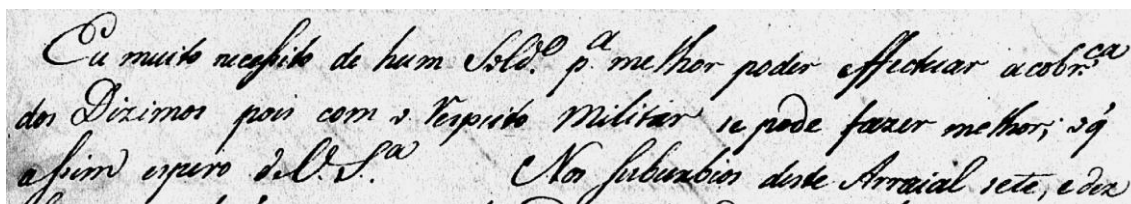 Eu muito necessito de hum Sold.º p.ª melhor poder effectuar acobr.ca
dos Dizimos pois com o respeito Militar se pode fazer melhor; oq̃
assim espero de V. S.ª Nos suburbios deste Arraial sete, e dez